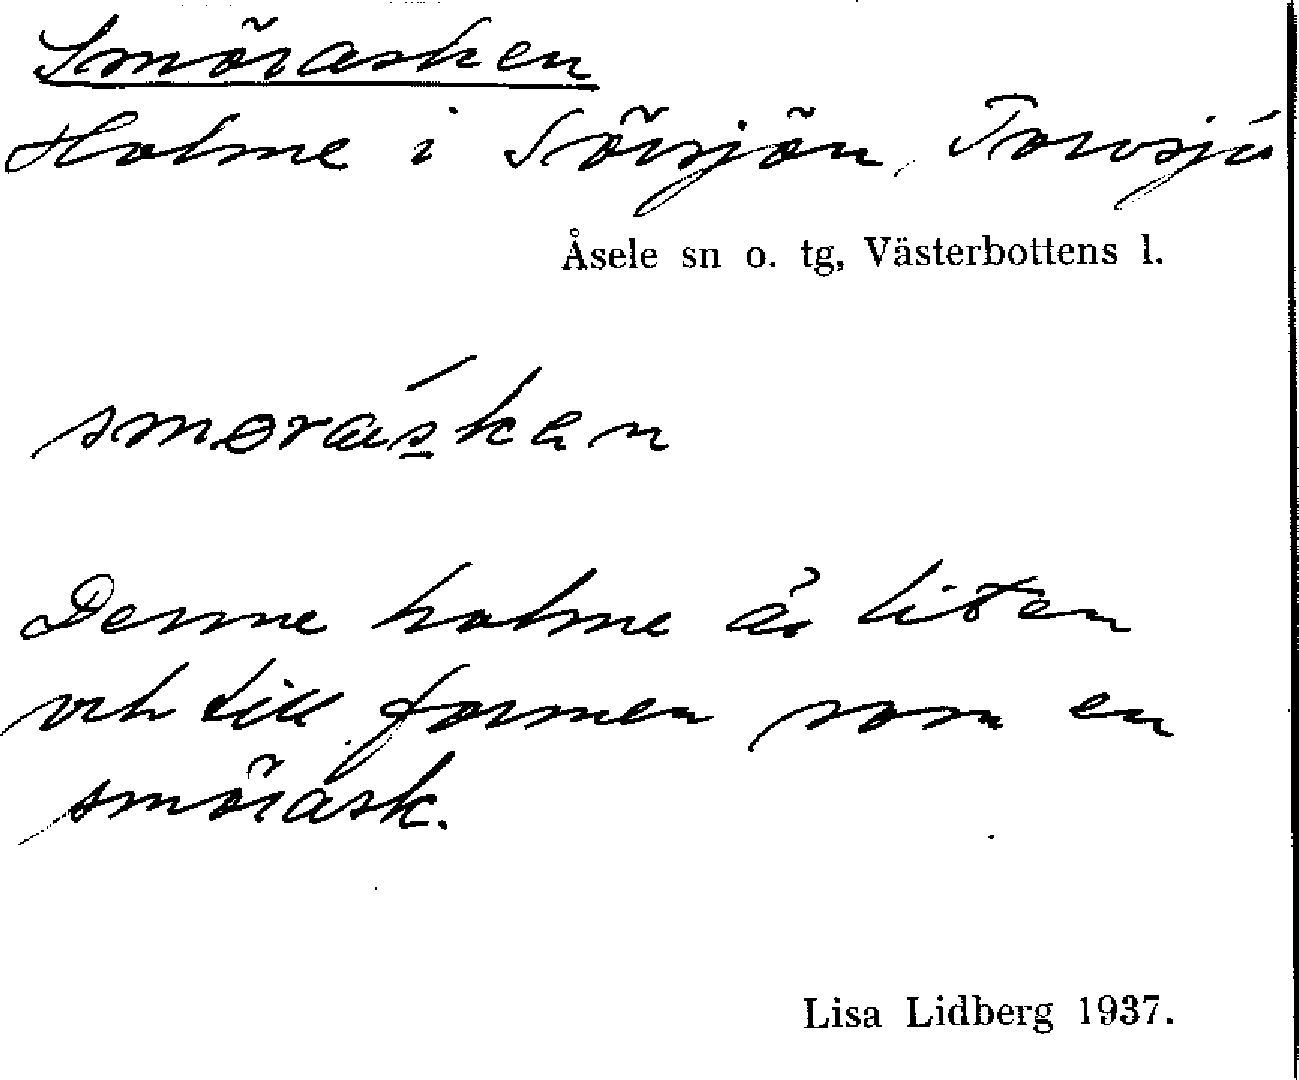 Smörasken
Holme i Sörsjön, Torvsjö
Åsele sn o. tg, Västerbottens l.
smɵraskən
Denna holme är liten
och till formen som en
smörask.
Lisa Lidberg 1937.